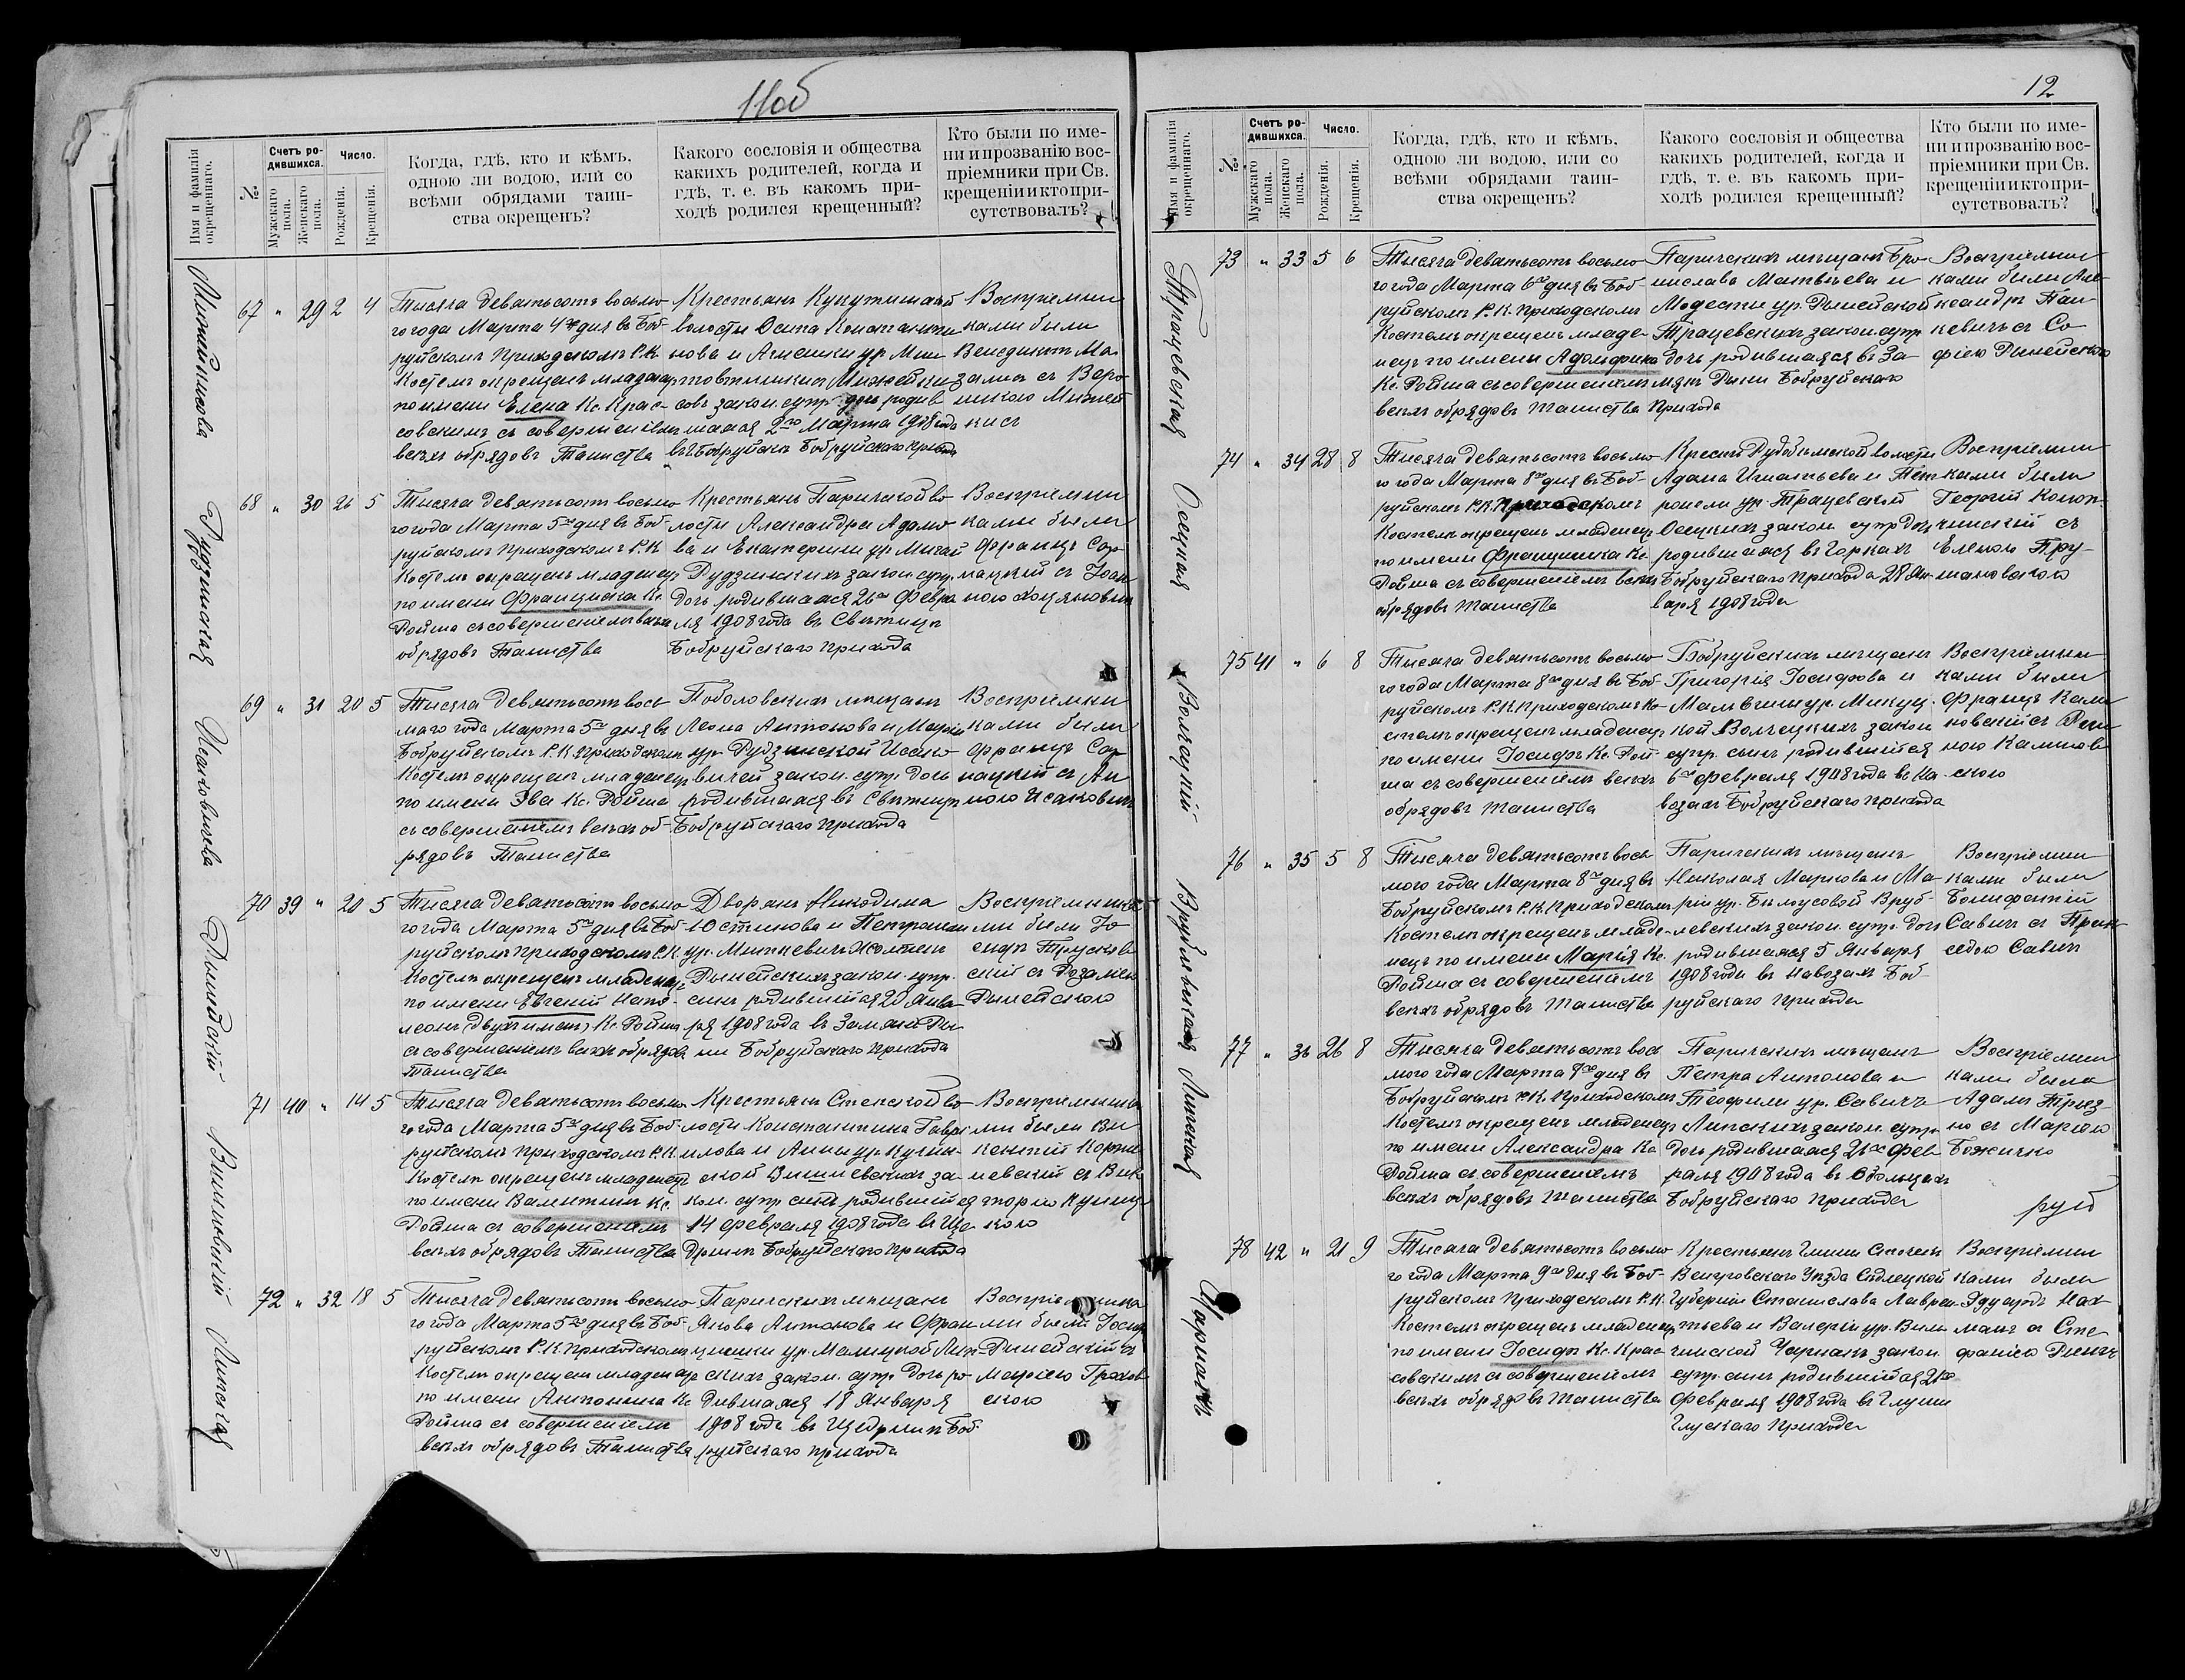 11об
Имя и фамилія окрещеннаго.
№
Счетъ родившихся.
Мужскаго пола.
Женскаго пола.
Число.
Рожденія.
Крещенія.
Когда, гдѣ, кто и кѣмъ,
одною ли водою, или со
всѣми обрядами таин-
ства окрещенъ?
Какого сословія и общества
какихъ родителей, когда и
гдѣ, т. е. въ какомъ при-
ходѣ родился крещенный?
Кто были по име-
ни и прозванію вос-
пріемники при Св.
крещеніи и кто при-
сутствовалъ?
67 " 29 2 4
Тысяча девятьсотъ восьмо
го года Марта 4го дня въ Боб-
руйскомъ Приходскомъ Р.К.
Костелѣ окрещенъ младенецъ
по имени Елена Кс. Крас-
совскимъ съ совершеніемъ
всѣхъ обрядовъ Таинства
Крестьянъ
волости Осипа Константи
нова и Агнешки ур.
совъ закон. супр. дочь родив
шаяся 2го Марта 1908 года
въ Бобруйскѣ Бобруйскаго прихода
Воспріемни
ками были
Венедиктъ Ма-
съ Веро
никою
68 " 30 26 5
Дудзинская
Тысяча девятьсотъ восьмо
го года Марта 5го дня въ Боб
руйскомъ Приходскомъ Р.К
Костелѣ окрещенъ младенецъ
по имени Франциска Кс.
Ройша съ совершеніемъ всѣхъ
обрядовъ Таинства
Крестьянъ Паричской во
лости Александра Адамо
ва и Екатерины ур.
Дудзинскихъ закон. супр.
дочь родившаяся 26го Февра
ля 1908 года въ
Бобруйскаго прихода
Воспріемни
ками были
Францъ Сор
нацкій съ Іоан
ною
69 " 31 20 5
Исаковичева
Тысяча девятьсотъ вось
маго года Марта 5го дня въ
Бобруйскомъ Р.К. Приходскомъ
Костелѣ окрещенъ младенецъ
по имени Эва Кс. Ройша
съ совершеніемъ всѣхъ об-
рядовъ Таинства
Поболовскихъ мѣщанъ
Леона Антонова и Маріи
ур. Рудзинской Исако-
вичей закон. супр. дочь
родившаяся въ
Бобруйскаго прихода
Воспріемни
ками были
Францъ Сор
нацкій съ Ан
ною Исаковичъ
70 39 " 20 5
Рынейскій
Тысяча девятьсотъ восьмо
го года Марта 5го дня въ Боб
руйскомъ Приходскомъ Р.К.
Костелѣ окрещенъ младенецъ
по имени Евгеній Напо-
леонъ (двухъ именъ) Кс. Ройша
съ совершеніемъ всѣхъ обрядовъ
Таинства
Дворянъ Никодима
Юстинова и
ур.
Рынейскихъ закон. супр.
сынъ родившійся 20 Янва
ря 1908 года въ Замянъ Ры
ни Бобруйскаго прихода
Воспріемника
ми были Іо
сифъ Трусков
скій съ
Рынейскою
71 40 " 14 5
Тысяча девятьсотъ восьмо
го года Марта 5го дня въ Боб-
руйскомъ Приходскомъ Р.К.
Костелѣ окрещенъ младенецъ
по имени Валентинъ Кс.
Ройша съ совершеніемъ
всѣхъ обрядовъ Таинства
Крестьянъ
лости Константина Гаврі
илова и Анны ур.
кон. супр. сынъ родившійся
14 Февраля 1908 года въ Ще
дринѣ Бобруйскаго прихода
Воспріемника
ми были Ви
кентій
съ Вик
торіею
72 " 32 18 5
Липская
Тысяча девятьсотъ восьмо
го года Марта 5го дня въ Боб-
руйскомъ Р.К. Приходскомъ
Костелѣ окрещенъ младенецъ
по имени Антонина Кс
Ройша съ совершеніемъ
всѣхъ обрядовъ Таинства
Паричскихъ мѣщанъ
Якова Антонова и Фран
цишки ур. Малицкой Лип-
скихъ закон. супр. дочь ро
дившаяся 18 Января
1908 года въ Щедринѣ Боб
руйскаго прихода
Воспріемника
ми были Іосифъ
Рынейскій съ
12
Имя и фамилія окрещеннаго.
№
Счетъ родившихся.
Мужскаго пола.
Женскаго пола.
Число.
Рожденія.
Крещенія.
Когда, гдѣ, кто и кѣмъ,
одною ли водою, или со
всѣми обрядами таин-
ства окрещенъ?
Какого сословія и общества
какихъ родителей, когда и
гдѣ, т. е. въ какомъ при-
ходѣ родился крещенный?
Кто были по име-
ни и прозванію вос-
пріемники при Св.
крещеніи и кто при-
сутствовалъ?
73 " 33 5 6
Трацевская
Тысяча девятьсотъ восьмо
го года Марта 6го дня въ Боб-
руйскомъ Р.К. Приходскомъ
Костелѣ окрещенъ младе-
нецъ по имени Адольфина
Кс. Ройша съ совершеніемъ
всѣхъ обрядовъ Таинства
Паричскихъ мѣщанъ Бро-
нислава Матвѣева и
Модесты ур. Рынейской
Трацевскихъ закон. супр.
дочь родившаяся въ За-
мянъ Рыни Бобруйскаго
Прихода
Воспріемни
ками были Але
ксандръ Пан
кевичъ съ Со
фіею Рынейскою
74 " 34 28 8
Осецкая
Тысяча девятьсотъ восьмо
го года Марта 8го дня въ Боб-
руйскомъ Р.К. Приходскомъ
Костелѣ окрещенъ младенецъ
по имени Францишка Кс.
Ройша съ совершеніемъ всѣхъ
обрядовъ Таинства
Крестьянъ Рудобѣлской волости
Адама Игнатьева и Пет
ронели ур. Трацевской
Осецкихъ закон. супр. дочь
родившаяся въ Горкахъ
Бобруйскаго прихода 28 Ян
варя 1908 года
Воспріемни
ками были
Георгій Коноп-
чинскій съ
Еленою Пру-
шановскою
75 41 " 6 8
Волчецкій
Тысяча девятьсотъ восьмо
го года Марта 8го дня въ Боб-
руйскомъ Р.К. Приходскомъ Ко-
стелѣ окрещенъ младенецъ
по имени Іосифъ Кс. Рой-
ша съ совершеніемъ всѣхъ
обрядовъ Таинства
Бобруйскихъ мѣщанъ
Григорія Іосифова и
Мальвины ур. Микуц-
кой Волчецкихъ закон
супр. сынъ родившійся
6го Февраля 1908 года въ На-
возахъ Бобруйскаго прихода
Воспріемни
ками были
Францъ Кали
новскій съ Реги
ною Калинов
скою
76 " 35 5 8
Врублевская
Тысяча девятьсотъ вось
мого года Марта 8го дня въ
Бобруйскомъ Р.К. Приходскомъ
Костелѣ окрещенъ младе-
нецъ по имени Марія Кс.
Ройша съ совершеніемъ
всѣхъ обрядовъ Таинства
Паричскихъ мѣщанъ
Николая Маркова и Ма-
ріи ур. Бѣлоусовой Вруб-
левскихъ закон. супр. дочь
родившаяся 5 Января
1908 года въ Навозахъ Боб-
руйскаго прихода
Воспріемни
ками были
Бонифатій
Савичъ съ Прак
седою Савичъ
77 " 36 26 8
Липская
Тысяча девятьсотъ вос
мого года Марта 8го дня въ
Бобруйскомъ Р.К. Приходскомъ
Костелѣ окрещенъ младенецъ
по имени Александра Кс
Ройша съ совершеніемъ
всѣхъ обрядовъ Таинства
Паричскихъ мѣщанъ
Петра Антонова и
Теофили ур. Савичъ
Липскихъ закон. супр.
дочь родившаяся 26го Фев
раля 1908 года въ
Бобруйскаго прихода
Воспріемни
ками были
Адамъ
но съ Маріею
Божичко
руб
78 42 " 21 9
Чарнакъ
Тысяча девятьсотъ восьмо
го года Марта 9го дня въ Боб-
руйскомъ Приходскомъ Р.К.
Костелѣ окрещенъ младенецъ
по имени Іосифъ Кс. Крас-
совскимъ съ совершеніемъ
всѣхъ обрядовъ Таинства
Крестьянъ Гмины Сточекъ
Венгровскаго Уѣзда Сѣдлецкой
Губерніи Станислава Лаврен
тьева и Валеріи ур. Виль
чинской Чарнакъ закон.
супр. сынъ родившійся 21го
Февраля 1908 года въ Глуши
Глускаго Прихода
Воспріемни
ками были
Эдуардъ Нах
манъ съ Сте
фаніею